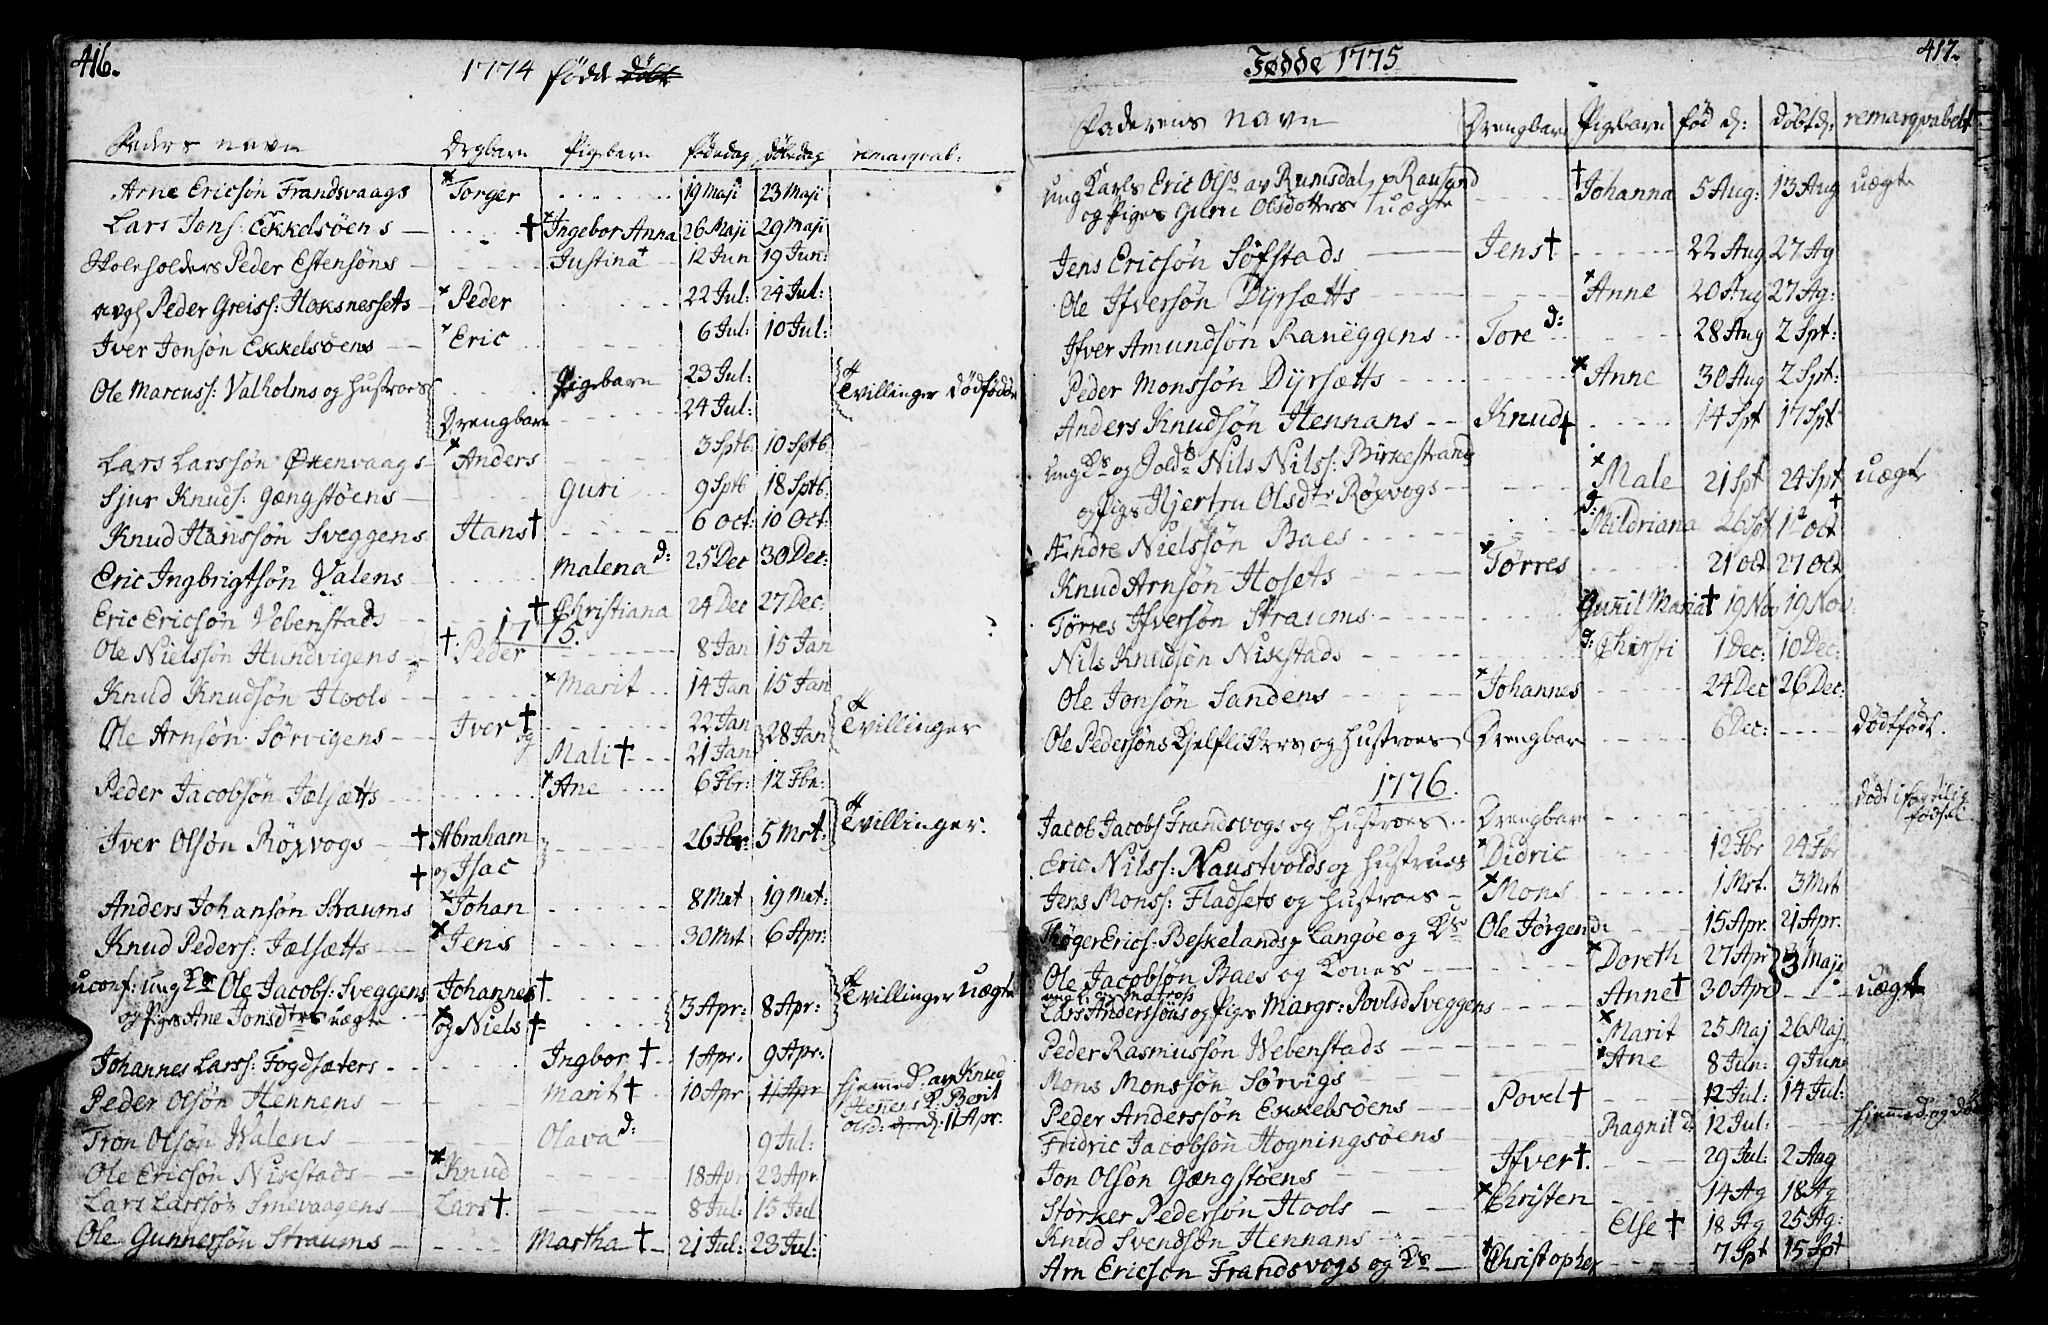 416.
1774 född döbt
Faders navn drgbarn Pigebarn födedag döbedag remarqvab:
Arne Ericsøn Frandsvaags Torger 19 Maji 23 Maji
Lars Jons: Ekkelsöens † Ingebor Anna 26 Maji 29 Maji
Skoleholders Peder Estensøns Justina † 12 Jun 19 Jun:
Peder Greiss: Hoksnessets Peder 22 Jul: 24 Jul:
Iver Jonsøn Ekkelsöens Eric 6 Jul: 10 Jul:
Ole Marcuss: Valholms og hustroes Pigebarn 23 Jul: Tvillinger dödfödde
Drengbarn 24 Jul:
Lars Larssøn Ørenvaags Anders 3 Sptb 10 Sptb.
Sjur Knuds: Gængstöens Guri 9 Sptb 18 Sptb.
Knud Hanssøn Sveggens Hans † 6 Oct: 10 Oct:
Eric Ingbrigtsøn Valens Malena d: 25 Dec 30 Dec:
Eric Ericsøn Vebenstads † Christiana 24 Dec 27 Dec:
1775.
Ole Nielssøn Hundvigens †. Peder 8 Jan 15 Jan
Knud Knudsøn Hools Marit 14 Jan 15 Jan
Ole Arnsøn Sörvigens Iver † og 22 Jan 28 Jan Tvillinger
Mali † 21 Jan
Peder Jacobsøn Jælsætts Ane 6 Fbr: 12 Fbr:
Iver Olsøn Röxvogs † Abraham 26 Fbr: 5 Mrt: Tvillinger.
† og Isac
Anders Johansøn Straums Johan 8 Mrt 19 Mrt:
Knud Peders: Jælsætts Jens 30 Mrt 6 Apr:
uconf: ung Ks Ole Jacobs: Sveggens Johannes † 3 Apr: 8 Apr: Tvillinger uægte
og Piges Ane Jonsdtrs uægte og Niels †
Johannes Larss: Fogdsæters Ingbor † 1 Apr. 9 Apr:
Peder Olsøn Hennens Marit † 10 Apr 11 Apr hjemmed: av Knud
Hennens K: Berit
Olsd: d. 11 Apr:
Tron Olsøn Walens Olava d: 9 Jul:
Ole Ericsøn Nikstads Knud 18 Apr 23 Apr
Lars Larssøn Smevaagens Lars †. 8 Jul: 15 Jul
Ole Gunnersøn Straums Martha † 21 Jul: 23 Jul:
417.
Fødde 1775
Faderens navn Drengbarn Pigebarn föd d: döbt d: remarqvabelt
ung Karls Eric Olss av Rumsdal p Rausand † Johanna 5 Aug: 13 Aug uægte
og Piges Guru Olsdotters uægte
Jens Ericsøn Söfstads Jens † 22 Aug 27 Ag
Ole Ifversøn Dyrsætts Anne 20 Aug 27 Ag:
Ifver Amundsøn Raneggens Tore d: 28 Aug 2 Spt:
Peder Monssøn Dyrsætts Anne 30 Aug 2 Spt:
Anders Knudsøn Hennans Knud † 14 Spt 17 Spt
ung Ks og Sold: Nils Nilss: Birkestrand Male 21 Spt 24 Spt uægte
og Piges Hjertru Olsdtr Röxvogs
Ændre Nielssøn Baes d: Mildriana 26 Spt 1 Oct
Knud Arnsøn Hosets Tørres 21 Oct 27 Oct
Tørres Ifversøn Straums Gunnil Maria † 19 Nov 19 Nov:
Nils Knudsøn Nikstads d: Chirsti 1 Dec: 10 Dec:
Ole Jonsøn Sandens Johannes 24 Dec 26 Dec:
Ole Pedersøns Kjelflikkers og hustroes Drengbar 6 Dec: Dödfödt.
1776.
Jacob Jacobs Frandsvogs og hustroes Drengbar död i
födsel
Eric Nilss: Naustvolds og hustrues Didric 12 Fbr 24 Fbr
Jens Monss: Fladsets og hustroes Mons 1 Mrt. 3 Mrt
Thöger Erics: Beskelands p Langöe og Ks Ole Jørgen d: 15 Apr. 21 Apr.
Ole Jacobsøn Baes og Kones Doreth 27 Apr 3 Maji
ung K: og Matros
Lars Anderssöns og Piges Margr: Povlsd Sveggens Anne † 30 Apr uægte
Peder Rasmussøn Webenstads Marit 25 Maj 26 Maj
Mons Monssøn Sörvigs Ane 8 Jun: 9 Juni
Peder Anderssøn Ekkelsöens Povel † 12 Jul: 14 Jul:
Fridric Jacobsøn Hogningsöens Ragnil d: 12 Jul: hjemmed: og död
Jon Olsøn Gængstöens Ifver †. 29 Jul: 2 Aug
Størker Pedersøn Hools Christen 14 Ag 18 Ag
Knud Svendsøn Hennans Else † 18 Ag 25 Ag:
Arn Ericsøn Frandsvogs og Ks Christopher 7 Spt 15 Spt